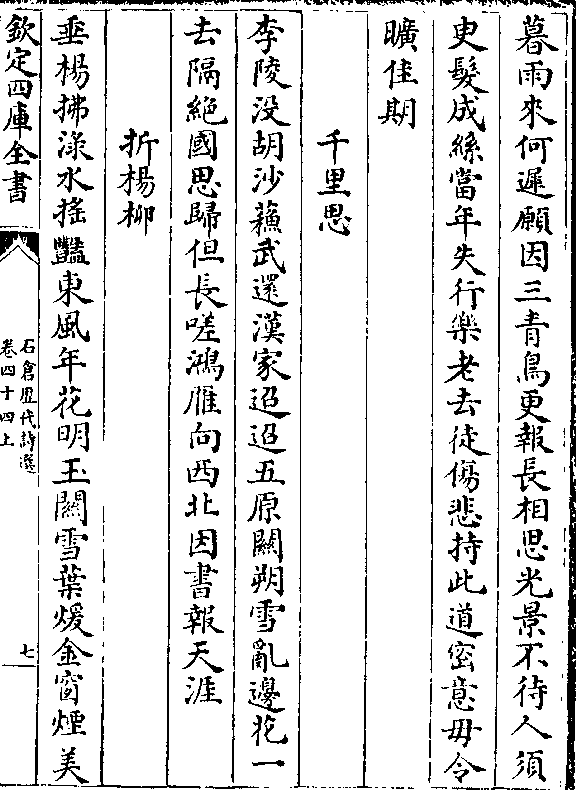 暮雨來何遲願因三青鳥更報長相思光景不待人須
臾髮成絲當年失行樂老去徒傷悲持此道宻意毋令
曠佳期
千里思
李陵没胡沙蘓武還漢家迢迢五原闗朔雪亂邊花一
去隔絶國思歸但長嗟鴻雁向西北因書報天涯
折楊柳
垂楊拂渌水揺豔東風年花明玉闗雪葉煖金窗煙美
欽定四庫全書
石倉歴代詩選
卷四十四上
七